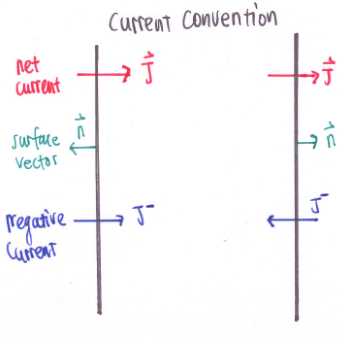 Current Convention
net
current
J
J
surface
vector
n
n
negative
current
J⁻
J⁻